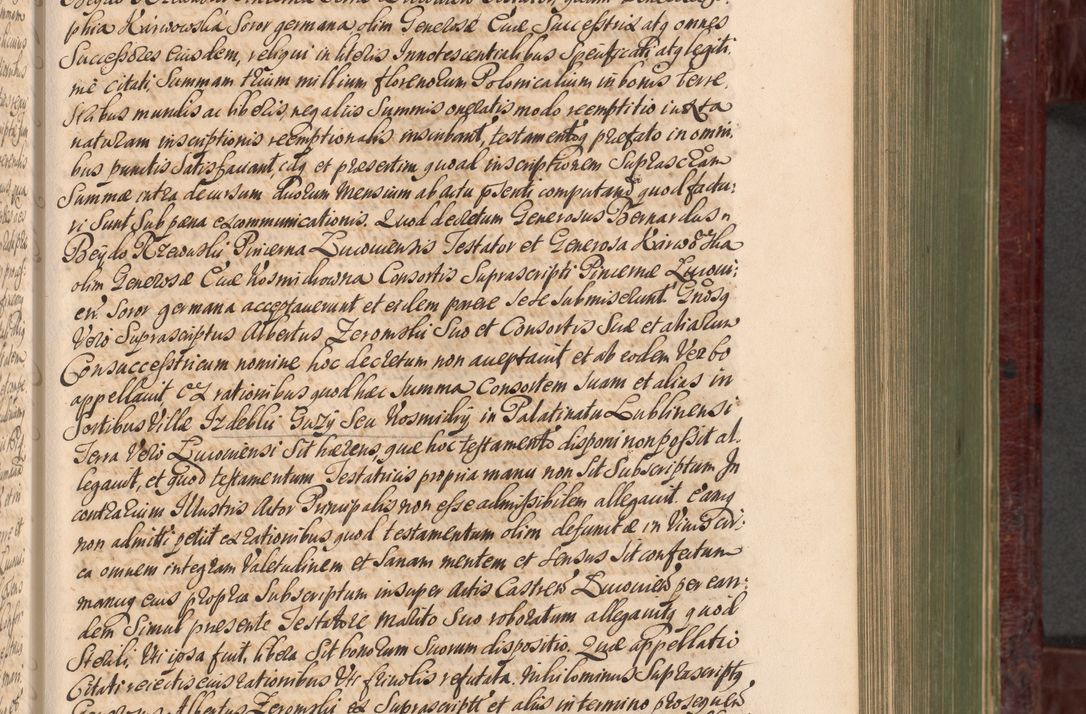 phia Karwowska Soror germana olim Generosæ Evæ Successtrix atq omnes
Successores eiusdem, reliqui in literis Innotescentialibus Specificati atq legiti:
me citati, Summam trium millium florenorum Polonicalium in bonis Terre
stribus mundis ac liberis, negatiis Summis oneratis modo reemptitio iuxta
naturam inscriptionis reemptionalis inscribant, testamentoq prefato in omni,
bus punctis satisfaciant, idq et presertim quoad inscriptionem Suprascriptam
Summæ intra decursum duorum Mensium ab actu psenti computand quod factu:
ri Sunt Sub pæna excommunicationis. Quod decretum Generosus Bernardus
Beydo Rzewuski Pincerna Lucoviensis Testator et Generosa Karwoska
olim Generosæ Evæ Kosmidrowna Consortis Suprascripti Pincernæ Lucovi:
en. Soror germana acceptaverunt et eidem parere sese submiserunt. Gnosq
Vero Suprascriptus Albertus Zeromski Suo et Consortis Suæ et aliarum
Consuccesstricum nomine hoc decretum non acceptavit et ab eodem Verbo
appellavit ex rationibus quod hac Summa Consortem Suam et alias in
Sortibus Villæ Izdebki Guzy Seu Kosmidry in Palatinatu Lublinensi
Terra Vero Lucoviensi Sit hærens, quæ hoc testamento disponi non possit al.
legavit, et quod testamentum Testatricis propria manu non Sit Subscriptum In
contrarium Illustris Actor Principalis non esse admissibilem allegavit. eamq
non admitti petiit ex rationibus quod testamentum olim defunctæ in
ea omnem integram Valetudinem et Sanam mentem et Sensus Sit confectum
manuq eius propria Subscriptum insuper Actis Castren Lucovien per ean:
dem Simul presente Testatore marito Suo roboratum allegavitq quod
Sterili, Uti ipsa fuit, libera Sit bonorum Suorum dispositio. Quæ appellatio
Citati reiectis eius rationibus Uti frivolis refutata. Nihilominus Suprascriptq
Generosus Albertus Zeromski ex Suprascripti et aliis in termino prosequen